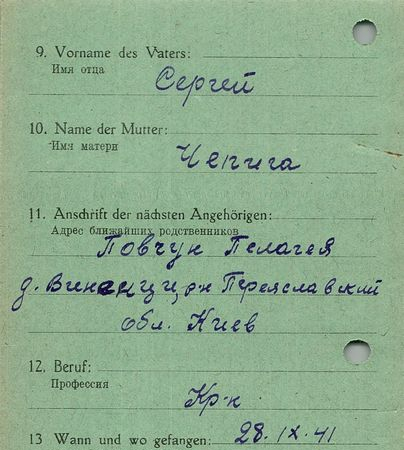 9. Vorname des Vaters:
Имя отца
Сергей
10. Name der Mutter:
Имя матери
Чепига
11. Anschrift der nächsten Angehörigen:
Адрес ближайших родственников
Повчун Пелагея
д. Виненци, рн Переяславский
обл. Киев
12. Beruf:
Профессия
Кр-н
13 Wann und wo gefangen: 28.IX.41